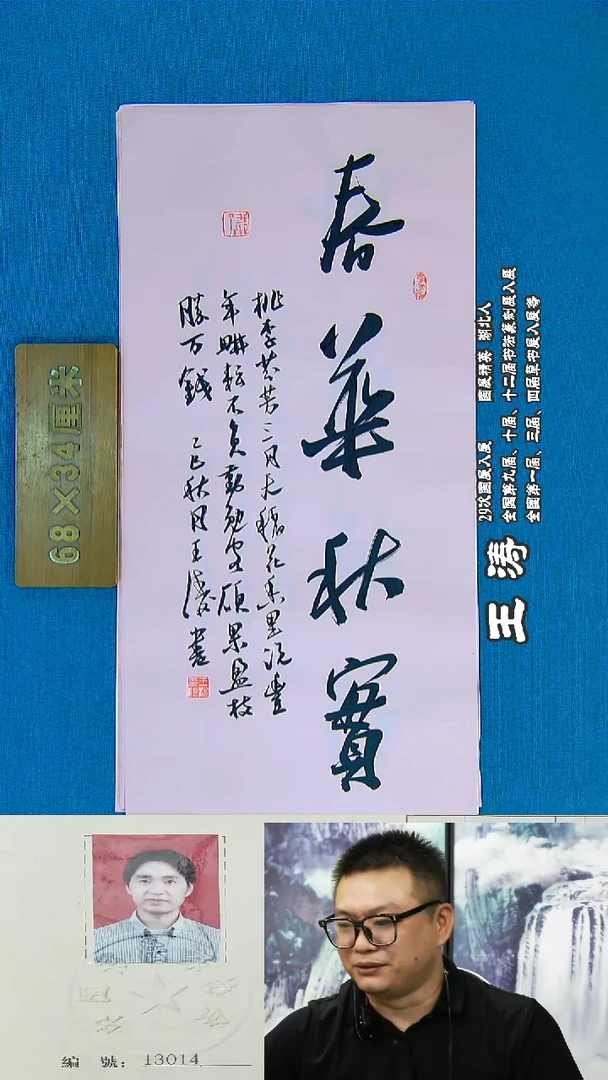 春華秋實
桃李芬芳三月天稻花香里说豐
年畊耘不負勤勉客碩果盈枝
勝万錢 乙巳秋月王濤書
68×34厘米
王涛
29次國展入展 國展精英 湖北人
全國第九届、十届、十二届书法篆刻展入展
全國第一届、三届、四届草书展入展等
編號：13014